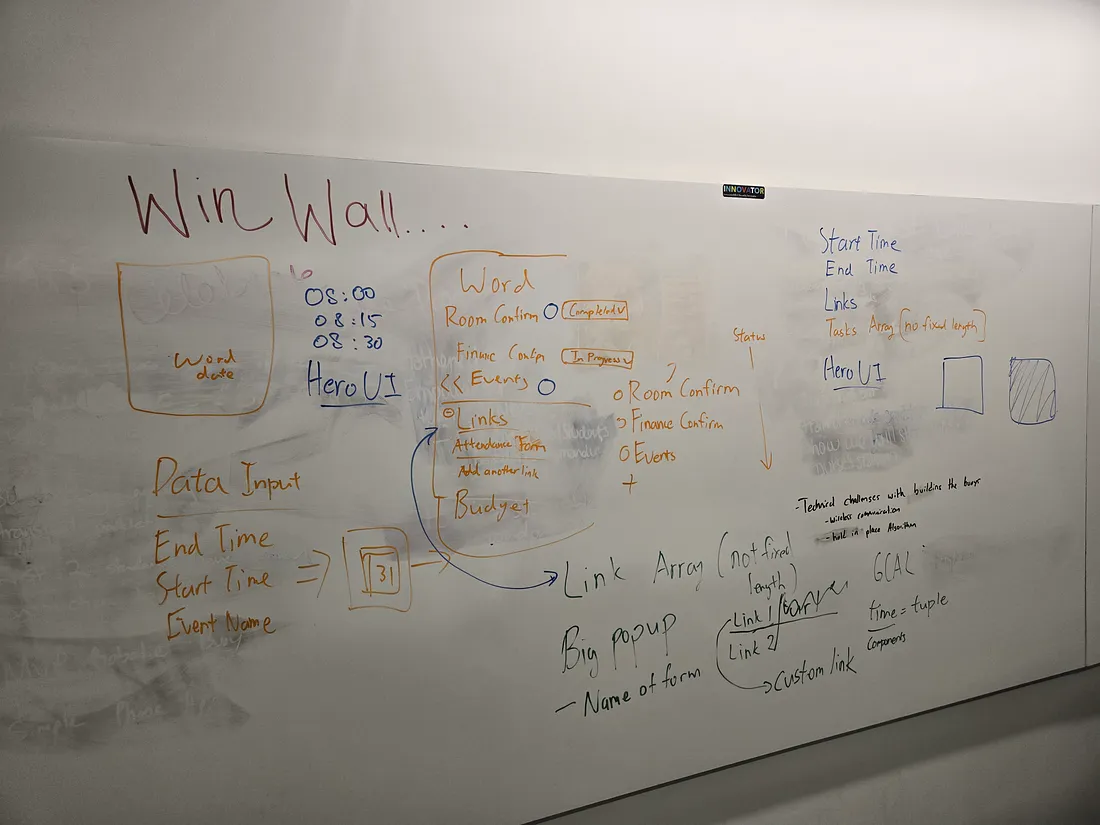 Win Wall....
INNOVATOR
Word
date
08:00
08:15
08:30
Hero UI
Word
Room Confirm
Completed
Finanic Confim
In Progress
<< Events
Links
Attendance Form
Add another link
Budget
Status
Room Confirm
Finance Confirm
Events
+
Start Time
End Time
Links
Tasks Array (no fixed length]
Hero UI
Data Input
End Time
Start Time
Event Name
=>
31
- Technical challenges with building the
- wireless communication
- hold in place Algorithm
Link Array (not fixed
length)
Big popup
- Name of form
Link 1/
Link 2/
Custom link
GCAL
time = tuple
Components